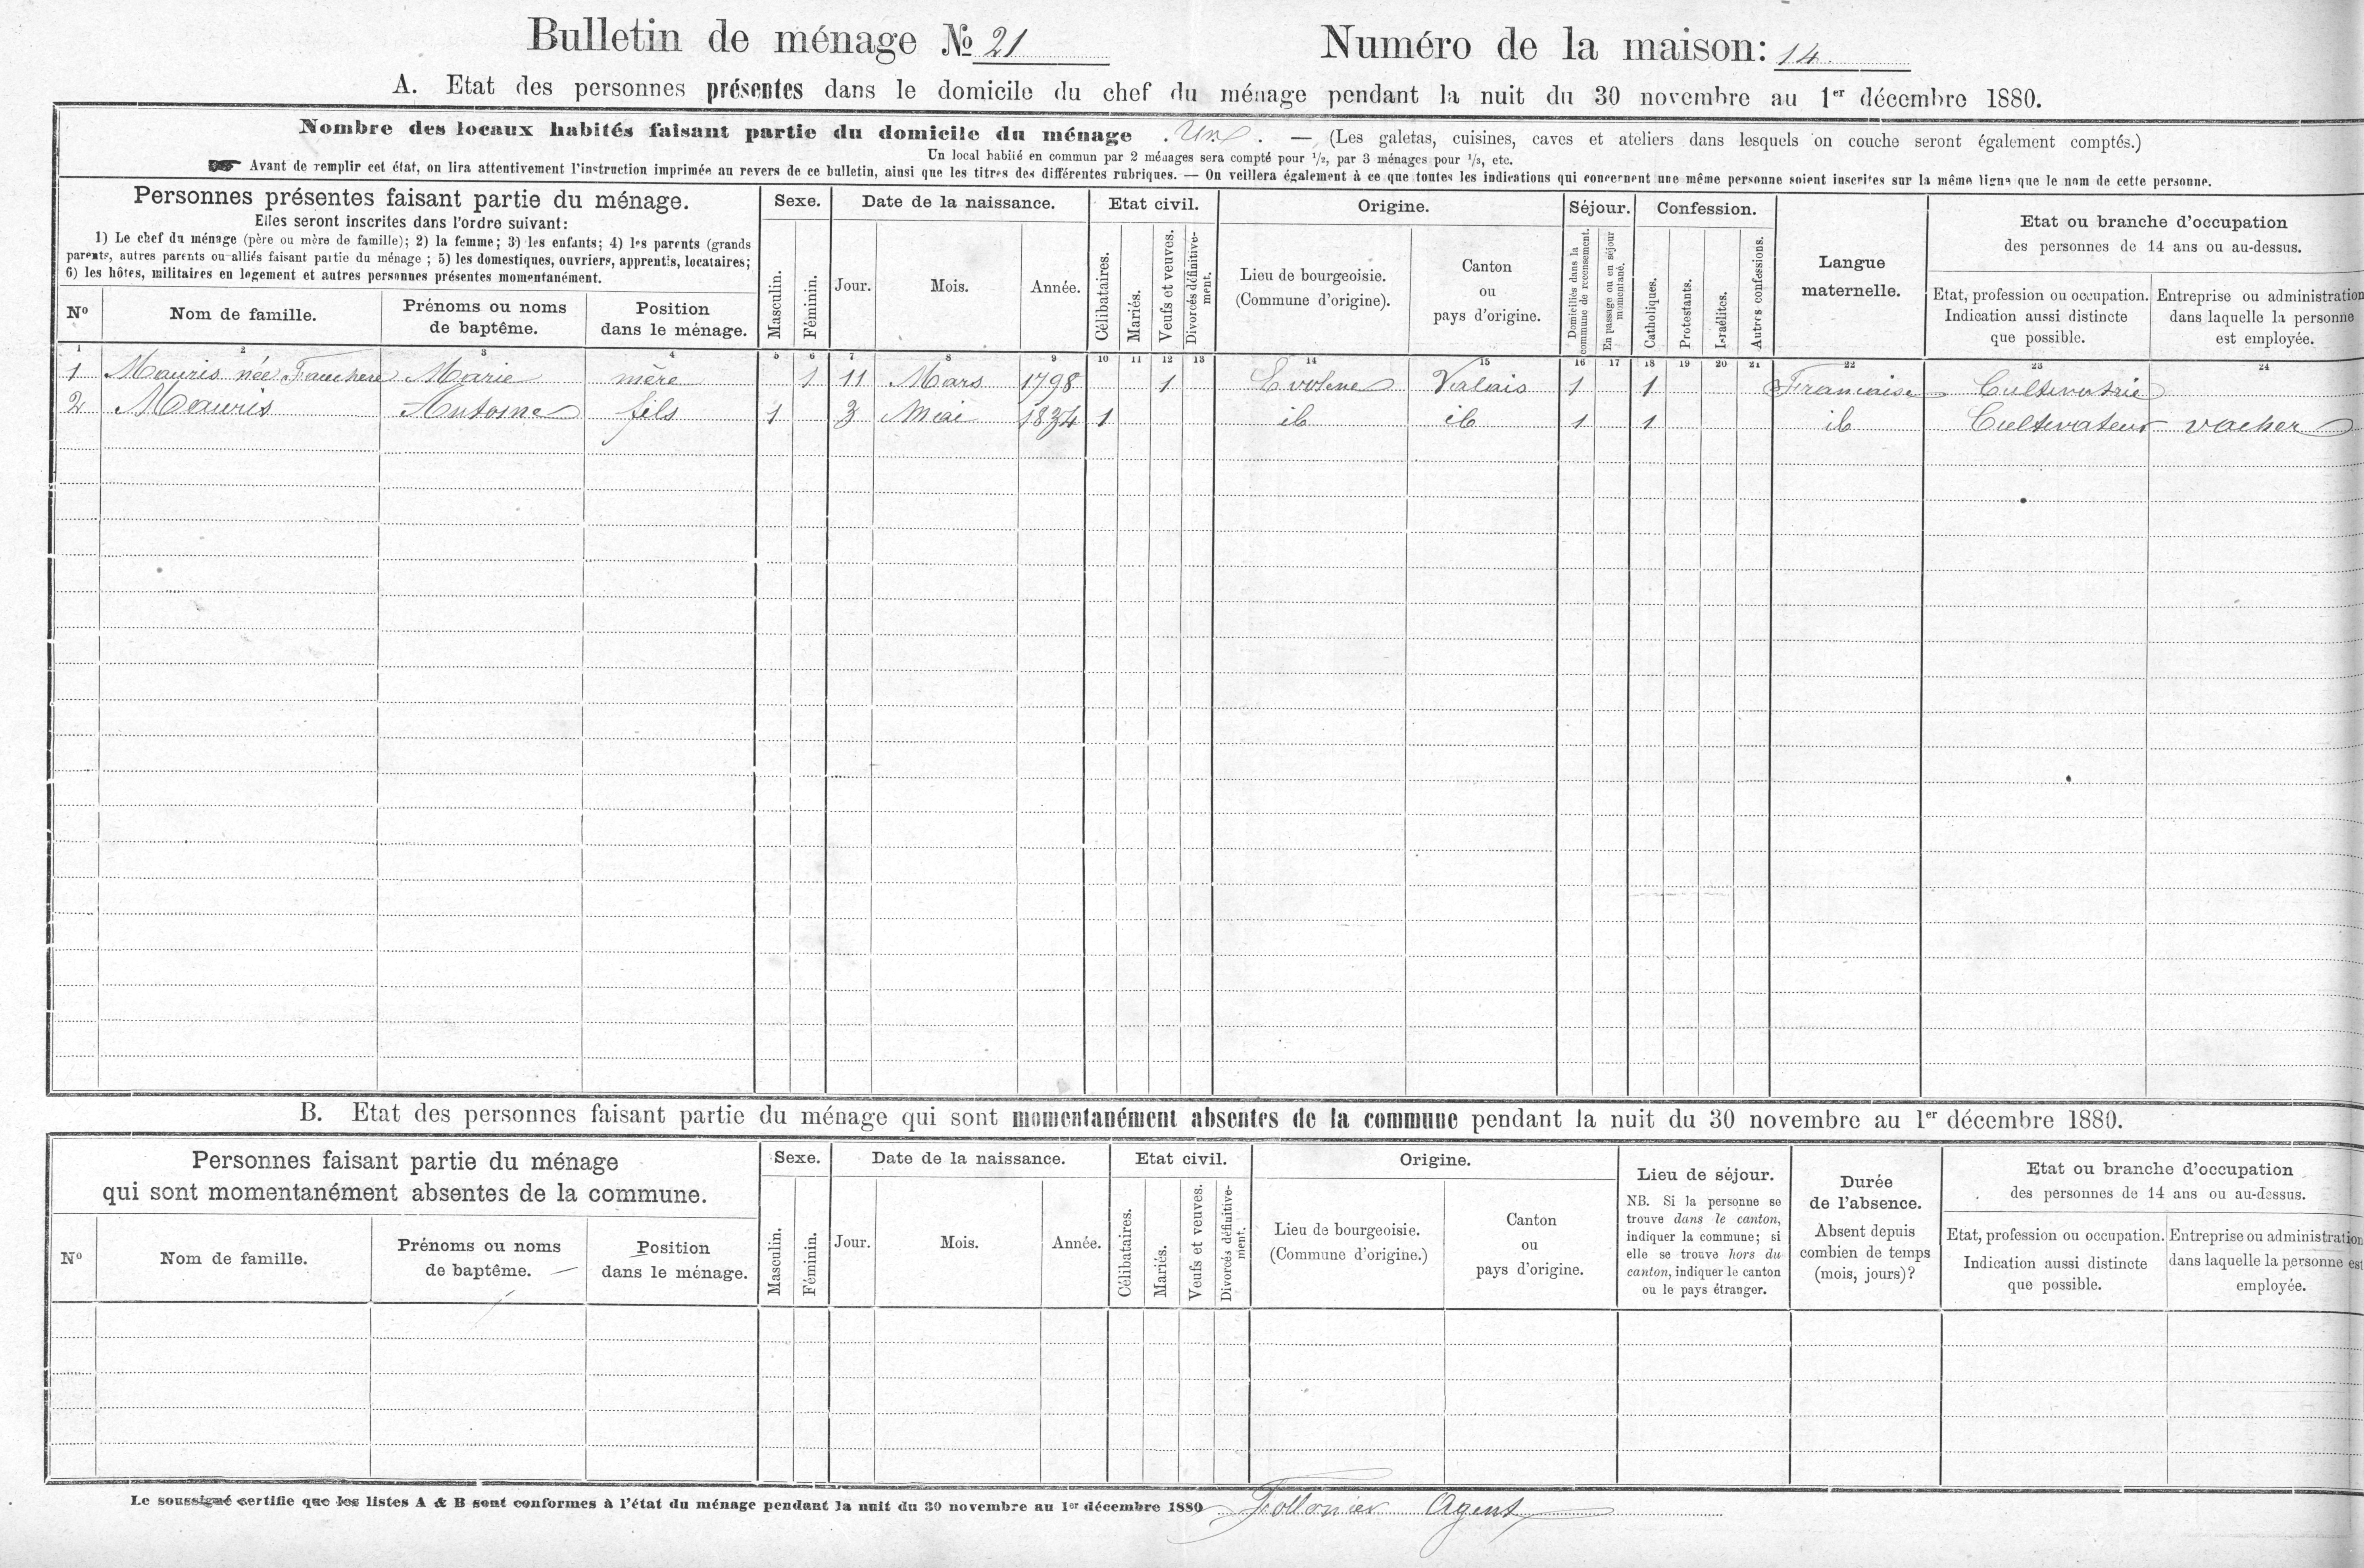 Bulletin de ménage No 21 Numéro de la maison: 14
A. Etat des personnes présentes dans le domicile du chef du ménage pendant la nuit du 30 novembre au 1er décembre 1880.
Nombre des locaux habités faisant partie du domicile du ménage . Une . — (Les galetas, cuisines, caves et ateliers dans lesquels on couche seront également comptés.)
Un local habité en commun par 2 ménages sera compté pour 1/2, par 3 ménages pour 1/3, etc.
☛ Avant de remplir cet état, on lira attentivement l'instruction imprimée au revers de ce bulletin, ainsi que les titres des différentes rubriques. — On veillera également à ce que toutes les indications qui concernent une même personne soient inscrites sur la même ligne que le nom de cette personne.
Personnes présentes faisant partie du ménage.
Elles seront inscrites dans l'ordre suivant:
1) Le chef du ménage (père ou mère de famille); 2) la femme; 3) les enfants; 4) les parents (grands
parents, autres parents ou alliés faisant partie du ménage ; 5) les domestiques, ouvriers, apprentis, locataires;
6) les hôtes, militaires en logement et autres personnes présentes momentanément.
No
Nom de famille.
Prénoms ou noms
de baptême.
Position
dans le ménage.
Sexe.
Masculin.
Féminin.
Date de la naissance.
Jour.
Mois.
Année.
Etat civil.
Célibataires.
Mariés.
Veufs et veuves.
Divorcés définitive-
ment.
Origine.
Lieu de bourgeoisie.
(Commune d'origine).
Canton
ou
pays d'origine.
Séjour.
Domiciliés dans la
commune de recensement.
En passage ou en séjour
momentané.
Confession.
Catholiques.
Protestants.
Israélites.
Autres confessions.
Langue
maternelle.
Etat ou branche d'occupation
des personnes de 14 ans ou au-dessus.
Etat, profession ou occupation.
Indication aussi distincte
que possible.
Entreprise ou administration
dans laquelle la personne
est employée.
1 2 3 4 5 6 7 8 9 10 11 12 13 14 15 16 17 18 19 20 21 22 23 24
1 Mauris née Fauchere Marie mère 1 11 Mars 1798 1 Evolene Valais 1 1 Francaise Cultivatrice
2 Mauris Antoine fils 1 3 Mai 1834 1 ib ib 1 1 ib Cultivateur vacher
B. Etat des personnes faisant partie du ménage qui sont momentanément absentes de la commune pendant la nuit du 30 novembre au 1er décembre 1880.
Personnes faisant partie du ménage
qui sont momentanément absentes de la commune.
No
Nom de famille.
Prénoms ou noms
de baptême.
Position
dans le ménage.
Sexe.
Masculin.
Féminin.
Date de la naissance.
Jour.
Mois.
Année.
Etat civil.
Célibataires.
Mariés.
Veufs et veuves.
Divorcés définitive-
ment.
Origine.
Lieu de bourgeoisie.
(Commune d'origine.)
Canton
ou
pays d'origine.
Lieu de séjour.
NB. Si la personne se
trouve dans le canton,
indiquer la commune; si
elle se trouve hors du
canton, indiquer le canton
ou le pays étranger.
Durée
de l'absence.
Absent depuis
combien de temps
(mois, jours)?
Etat ou branche d'occupation
des personnes de 14 ans ou au-dessus.
Etat, profession ou occupation.
Indication aussi distincte
que possible.
Entreprise ou administration
dans laquelle la personne est
employée.
Le soussigné certifie que les listes A & B sont conformes à l'état du ménage pendant la nuit du 30 novembre au 1er décembre 1880 Follonier Agent